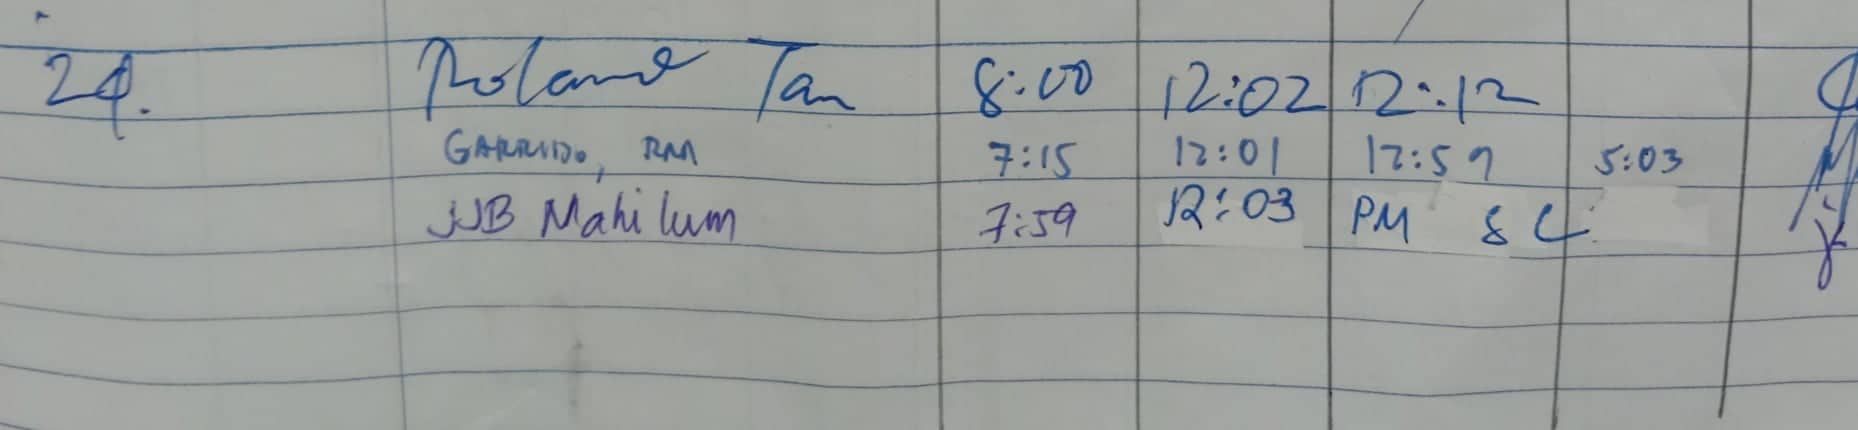 24. Roland Tan 8:00 12:02 12:12
GARRIDO, RM 7:15 12:01 12:59 5:03
JJB Mahilum 7:59 12:03 PM SL